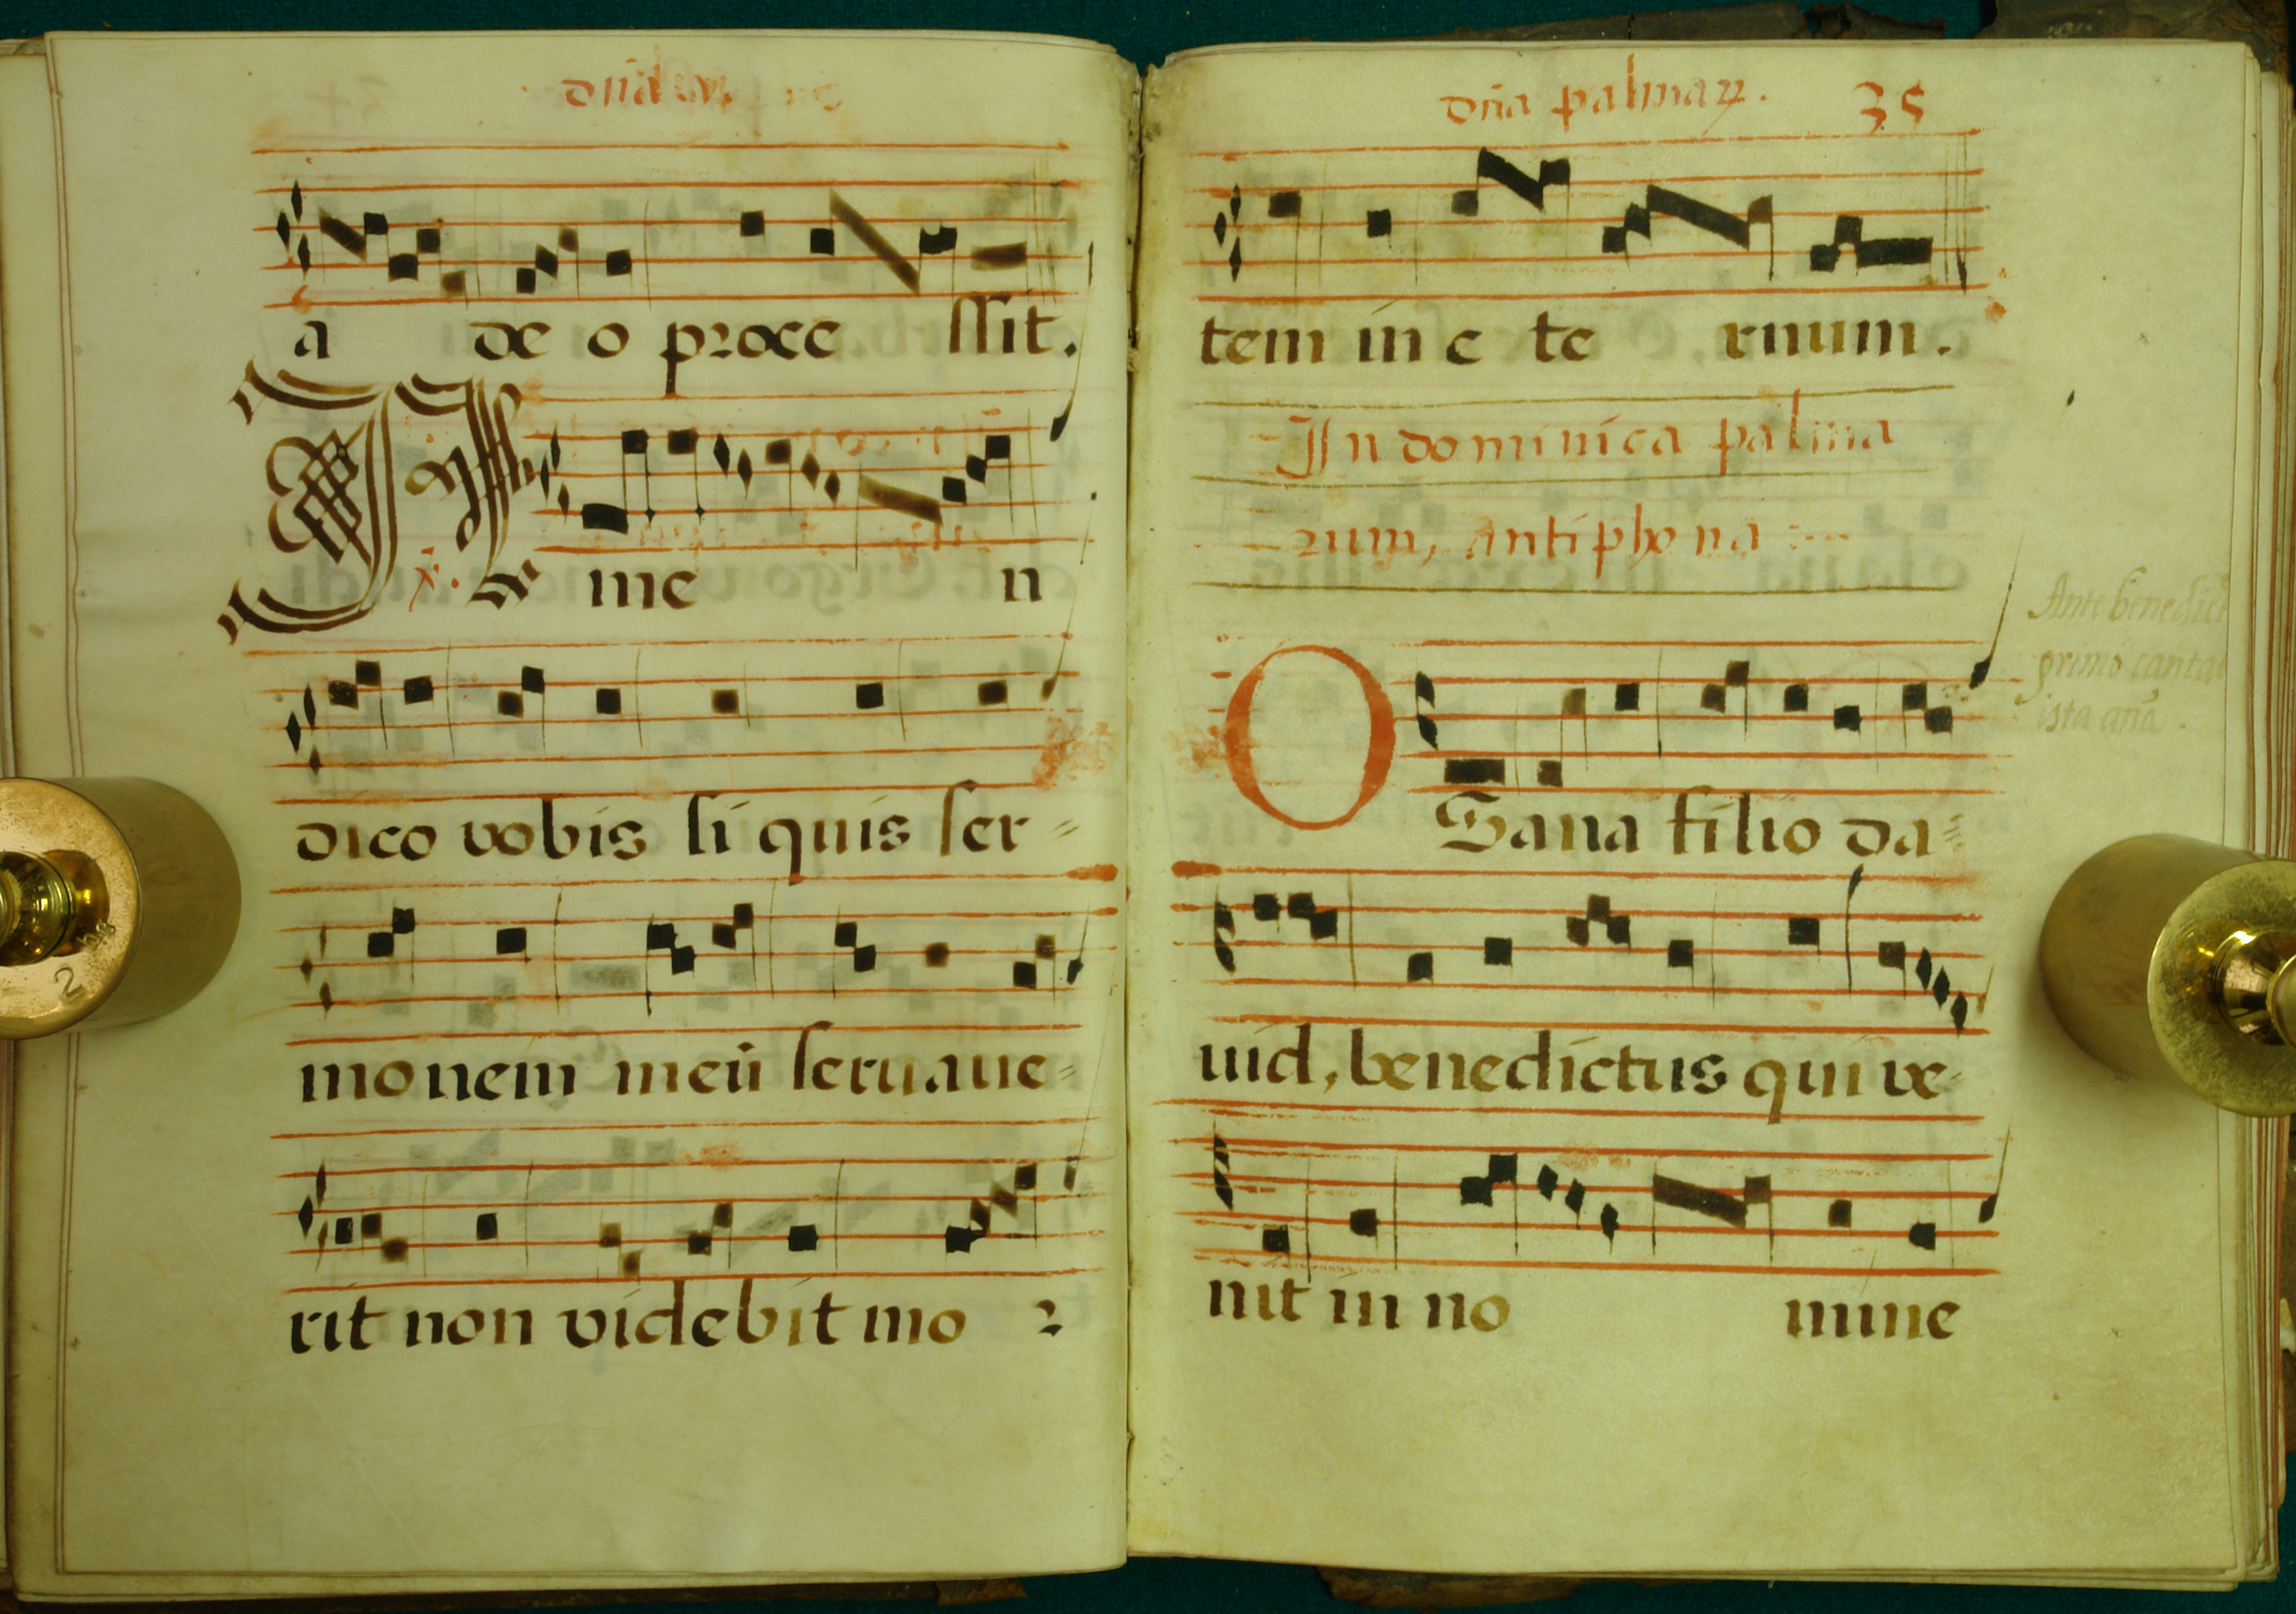 a de o proce ssit.
Amen
dico vobis si quis ser=
monem meū seruaue=
rit non videbit mo r
dn̄a palmaꝝ. 35
tem in e te rnum.
In dominica palma
rum, antiphona
OSana filio da=
uid, benedictus qui ve=
nit in no mine
Ante benedict
primo canta
ista anā.
2